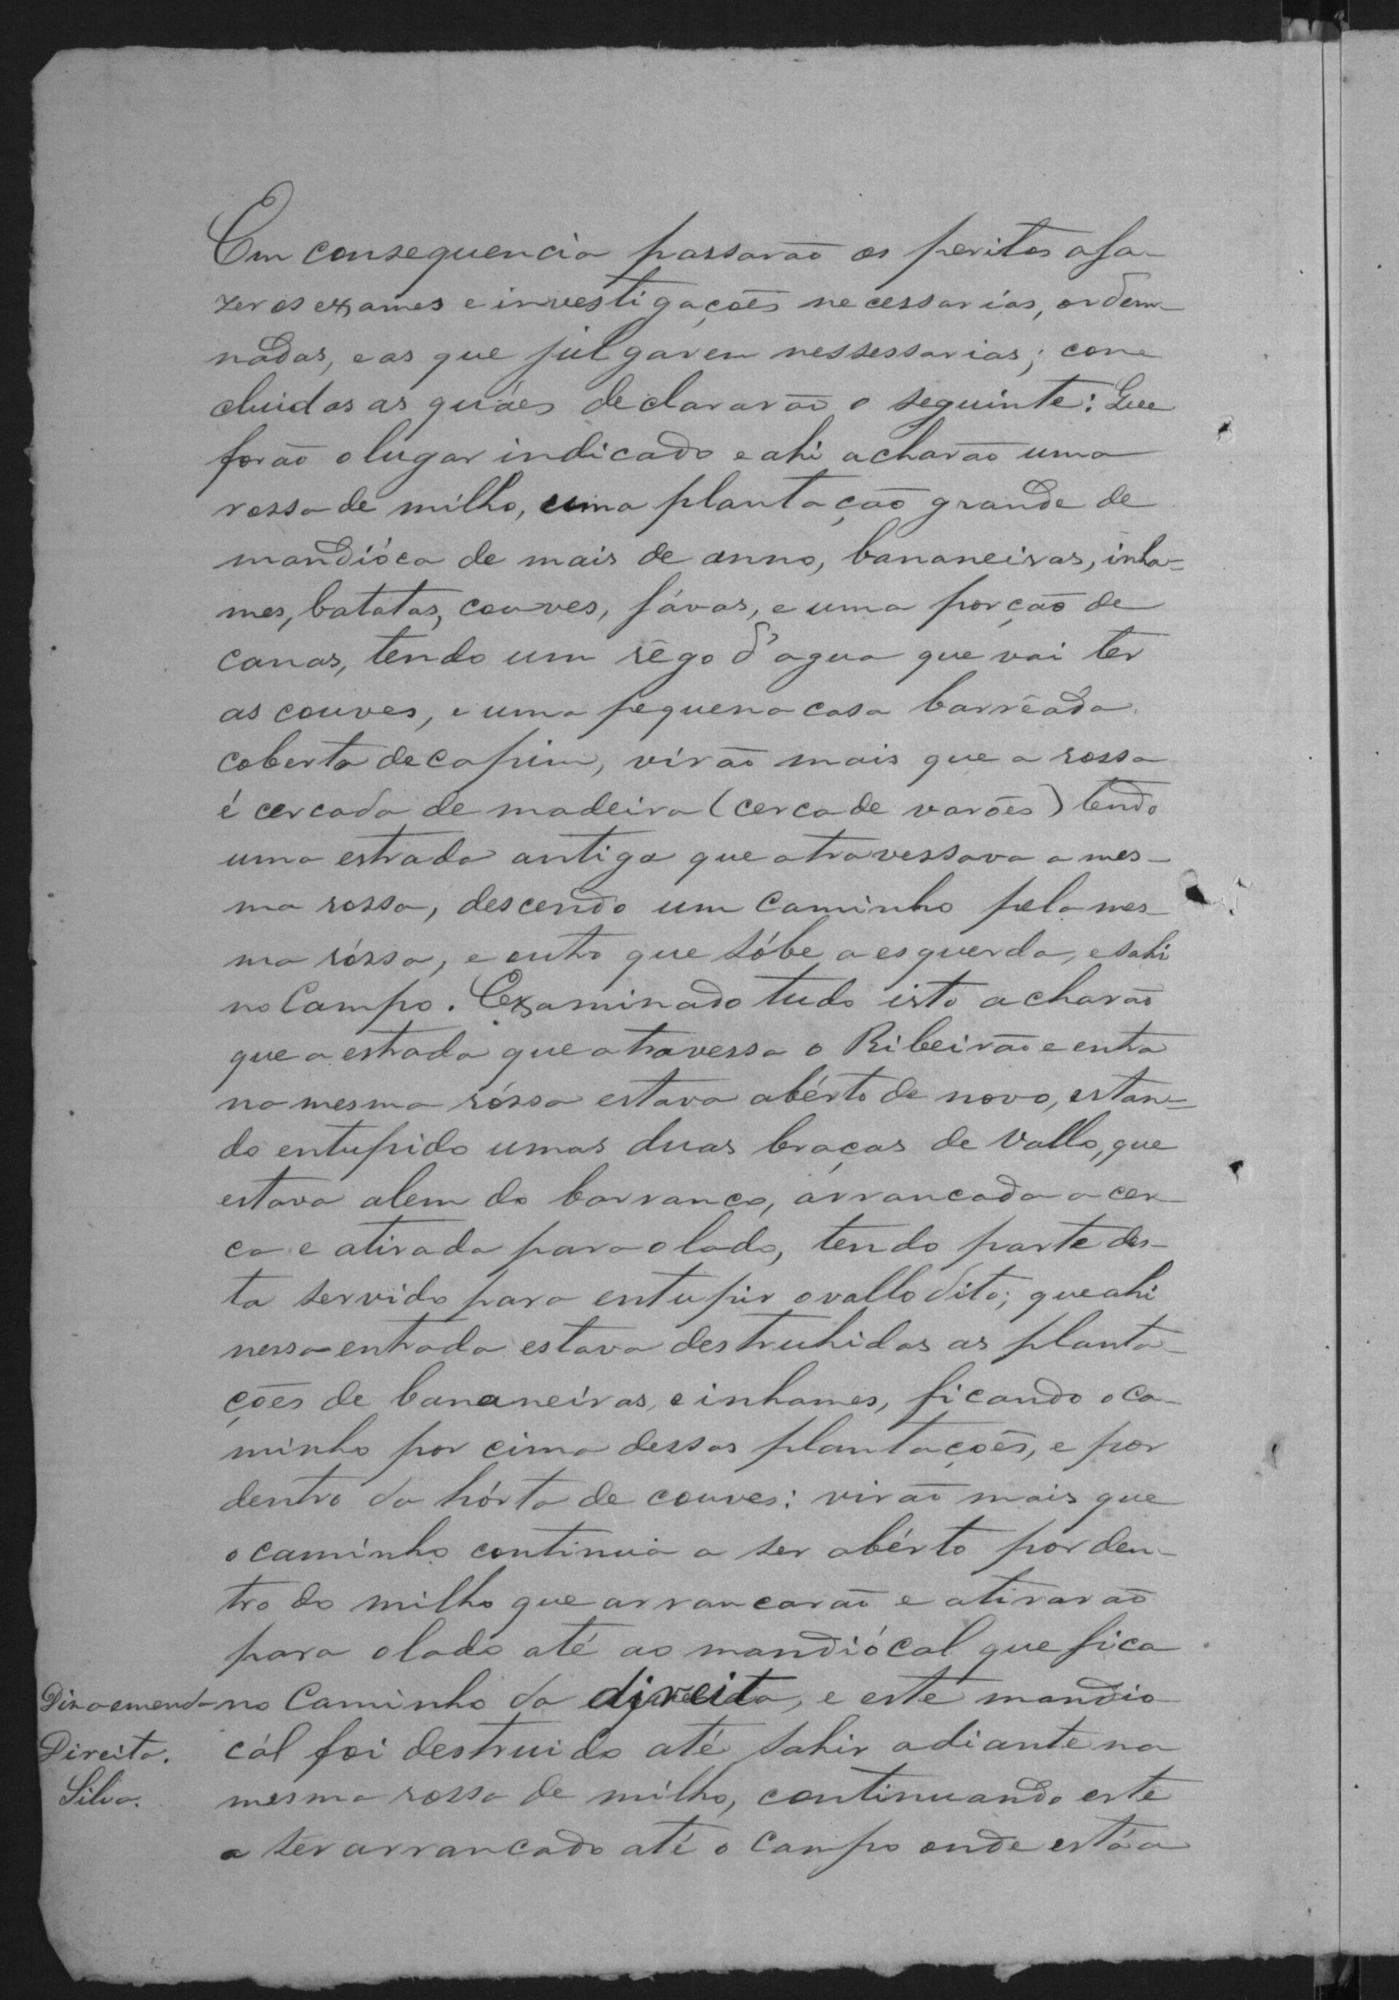 Em consequencia passarão os peritos a fa-
zer os exames e investigações necessarias, ordem-
nadas, e as que julgarem nessessarias; con-
cluidas as quáes declararão o seguinte: Que
forão o lugar indicado e ahi acharão uma
rossa de milho, uma plantação grande de
mandióca de mais de anno, bananeiras, inha-
mes, batatas, couves, fávas, e uma porção de
canas, tendo um rêgo d'agua que vai ter
as couves, e uma pequena casa barrêada
coberta de capim, virão mais que a rossa
é cercada de madeira (cerca de varões) tendo
uma estrada antiga que atravessava a mes-
ma rossa, descendo um caminho pela mes-
ma róssa, e outro que sóbe a esquerda, e sahi
no Campo. Examinado tudo isto acharão
que a estrada que atravessa o Ribeirão e entra
na mesma róssa estava abérto de novo, estan-
do entupido umas duas braças de vallo, que
estava alem do barranco, arrancada a cer-
ca e atirada para o lado, tendo parte des-
ta servido para entupir o vallo dito; que ahi
nessa entrada estava destruhidas as planta-
ções de bananeiras, e inhames, ficando o ca-
minho por cima dessas plantações, e por
dentro da hórta de couves: virão mais que
o caminho continua a ser abérto por den-
tro do milho que arrancarão e atirarão
para o lado até ao mandiócal que fica
no Caminho da direita, e este mandio
cál foi destruido até sahir adiante na
mesma rossa de milho, continuando este
a ser arrancado até o campo onde está a
Diz a emenda
Direita.
Silva.